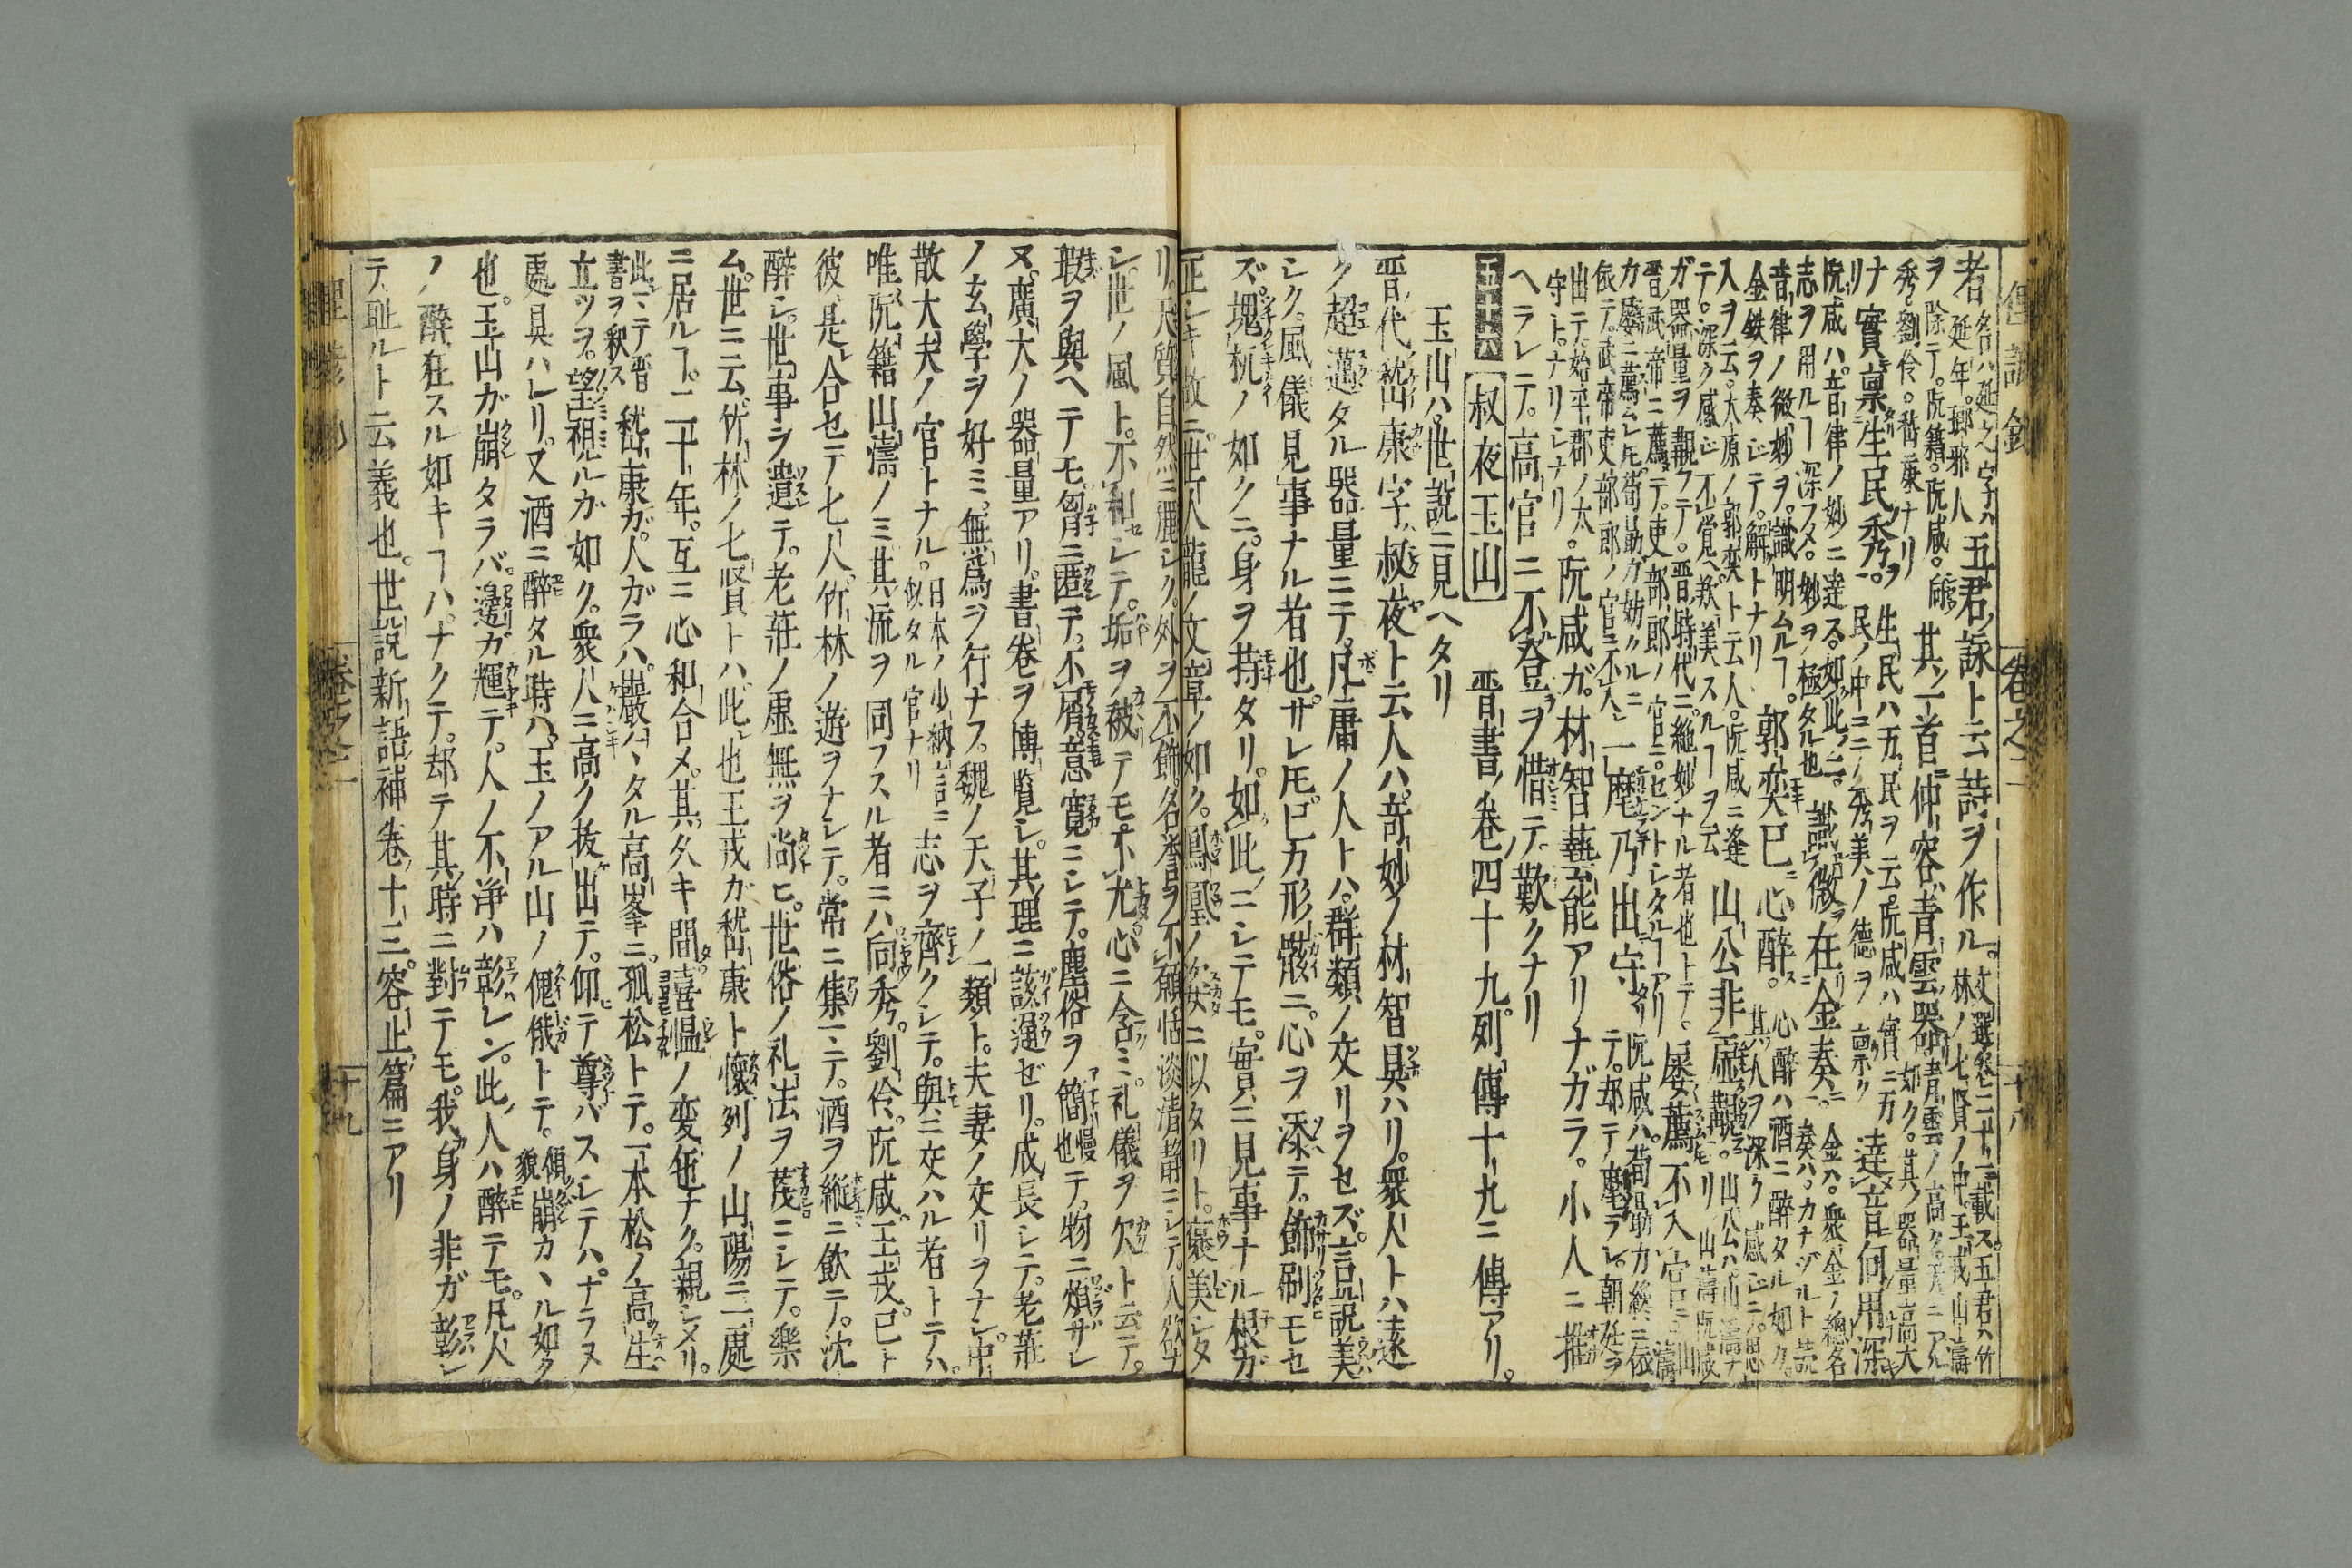 俚諺鈔 卷之二 十八
者名ハ延之字ハ延年。瑯邪人五君詠ト云詩ヲ作ル。文選卷二十一ニ載ス。五君ハ竹林ノ七賢ノ中。王戎山濤
ヲ除テ。阮籍。阮咸。向秀。劉伶。嵆康ナリ其ノ一首仲容青雲器青雲ノ高ク天ニアル如ク。其ノ器量高大
ナリ實稟生民秀。生民ハ五民ヲ云。阮咸ハ實ニ万民ノ中ニノ秀美ノ德ヲ稟ク達音何用深
阮咸ハ音律ノ妙ニ達ス。如此ニ志ヲ用ルヿ深フメ。妙ヲ極タル也識微在金奏金ハ衆金ノ總名奏ハカナヅルト読
音律ノ微妙ヲ。識明ムルヿ。金鉄ヲ奏メ。解トナリ郭奕已心醉。心醉ハ酒ニ醉タル如ク。其人ヲ深ク感メ。思
入ヲ云。大原ノ郭奕ト云人。阮咸ニ逢テ。深ク感メ不覚歎美スルヿヲ云山公非虛覯。山公ハ山濤ナリ山濤阮咸
ガ器量ヲ覯クテ。晋時代ニ。絶妙ナル者也トテ。晋ノ武帝ニ薦テ。吏部郎ノ官ニ。セントシタルヿアリ屡薦不入官山濤
カ屡ニ薦ムレ𪜈。荀勗カ妨クルニ依テ。武帝吏部郎ノ官ニ不入シ一麾乃出守阮咸ハ。荀勗カ縱ニ依テ。却テ麾ラレ。朝廷ヲ
出テ。始平郡ノ太守ト。ナリシナリ。阮咸ガ。材智藝能アリナガラ。小人ニ推
ヘラレテ。高官ニ不登ヲ惜テ。歎クナリ
五十八 叔夜玉山 晋書ノ卷四十九列傳十九ニ傳アリ。
玉山ハ。世説ニ見ヘタリ
晋代嵆康字叔夜ト云人ハ。奇妙ノ材智具ハリ。衆人トハ遠
ク超邁タル器量ニテ。凡庸ノ人トハ。群類ノ交リヲセズ。言説美
シク。風儀見事ナル若也。サレ𪜈。已カ形骸ニ。心ヲ添テ。飾刷モセ
ズ。塊杌ノ如クニ。身ヲ持タリ。如此ニシテモ。實ニ見事ナル根ガ
正シキ故ニ。世人龍ノ文章ノ如ク。鳳凰ノ姿ニ似タリト。襃美シタ
リ。天質自然ニ麗シク。外ヲ不飾。名誉ヲ不願。恬淡清静ニシテ。人欲ナ
シ。世ノ風ト。不和シテ。垢ヲ被テモ。不尤。心ニ含ミ。礼儀ヲ欠ト云テ。
瑕ヲ與ヘテモ。匈ニ匿テ。不屑意。寬ニシテ。塵俗ヲ簡慢也テ。物ニ煩ザレ
又。廣大ノ器量アリ。書卷ヲ博覧シ。其理ニ該通ゼリ。成長シテ。老莊
ノ玄學ヲ好ミ。無爲ヲ行ナフ。魏ノ天子ノ一類ト。夫妻ノ交リヲナシ。中
散大夫ノ官トナル。日本ノ少納言ニ似タル官ナリ志ヲ齊クシテ。與ニ交ハル若トテハ。
唯阮籍山濤ノミ其流ヲ同フスル者ニハ。向秀。劉伶。阮咸。王戎。已ト
彼是合セテ七人。竹林ノ遊ヲナシテ。常ニ集ニテ。酒ヲ縱ニ飲テ。沈
醉シ。世事ヲ遺テ。老莊ノ虛無ヲ尚ヒ。世俗ノ礼法ヲ蔑ニシテ。樂
ム。世ニ云竹林ノ七賢トハ。此也王戎ガ嵆康ト懷列ノ山陽ニ一處
ニ居ルヿ。二十年。互ニ心和合メ。其久キ間喜慍ノ変也ナク。親シメリ。
此ニテ晋書ヲ釈ス嵆康ガ。人ガラハ。巖ハタル高峯ニ。孤松トテ。一本松ノ高生
立ツヲ。望視ルガ如ク。衆人ニ高ク抜出テ。仰テ尊バズシテハ。ナラヌ
處具ハレリ。又酒ニ醉タル時ハ。玉ノアル山ノ傀俄トテ。傾崩カヽル如ク
也。玉山ガ崩タラバ。邊ガ輝テ。人ノ不浄ハ彰レン。此人ハ醉テモ。凡人
ノ醉狂スル如キヿハ。ナクテ。却テ其時ニ對テモ。我身ノ非ガ彰レ
テ恥ルト云義也。世説新語補卷十三。容止篇ニアリ
卷之二 十九